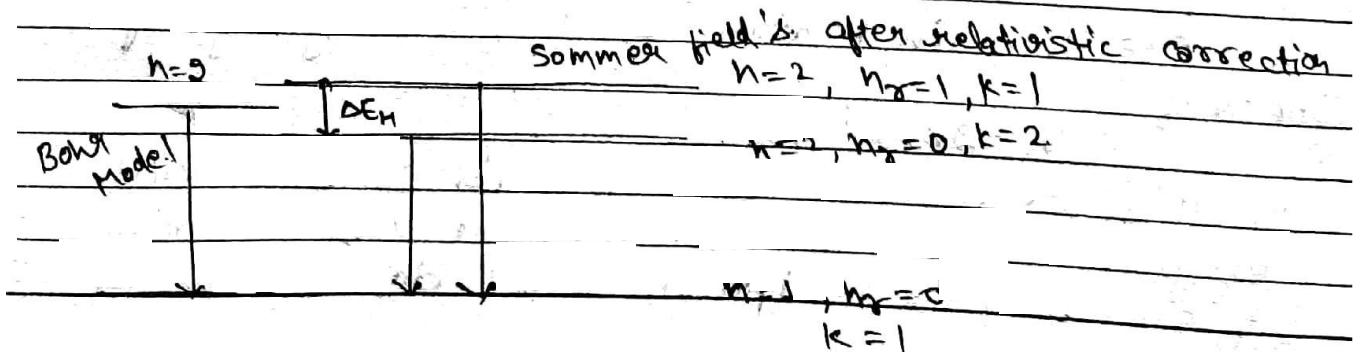 Sommerfield's after relativistic correction
n=2
n=2, nr=1, k=1
ΔEH
n=2, nr=0, k=2
Bohr
Model
n=1, nr=0
k=1